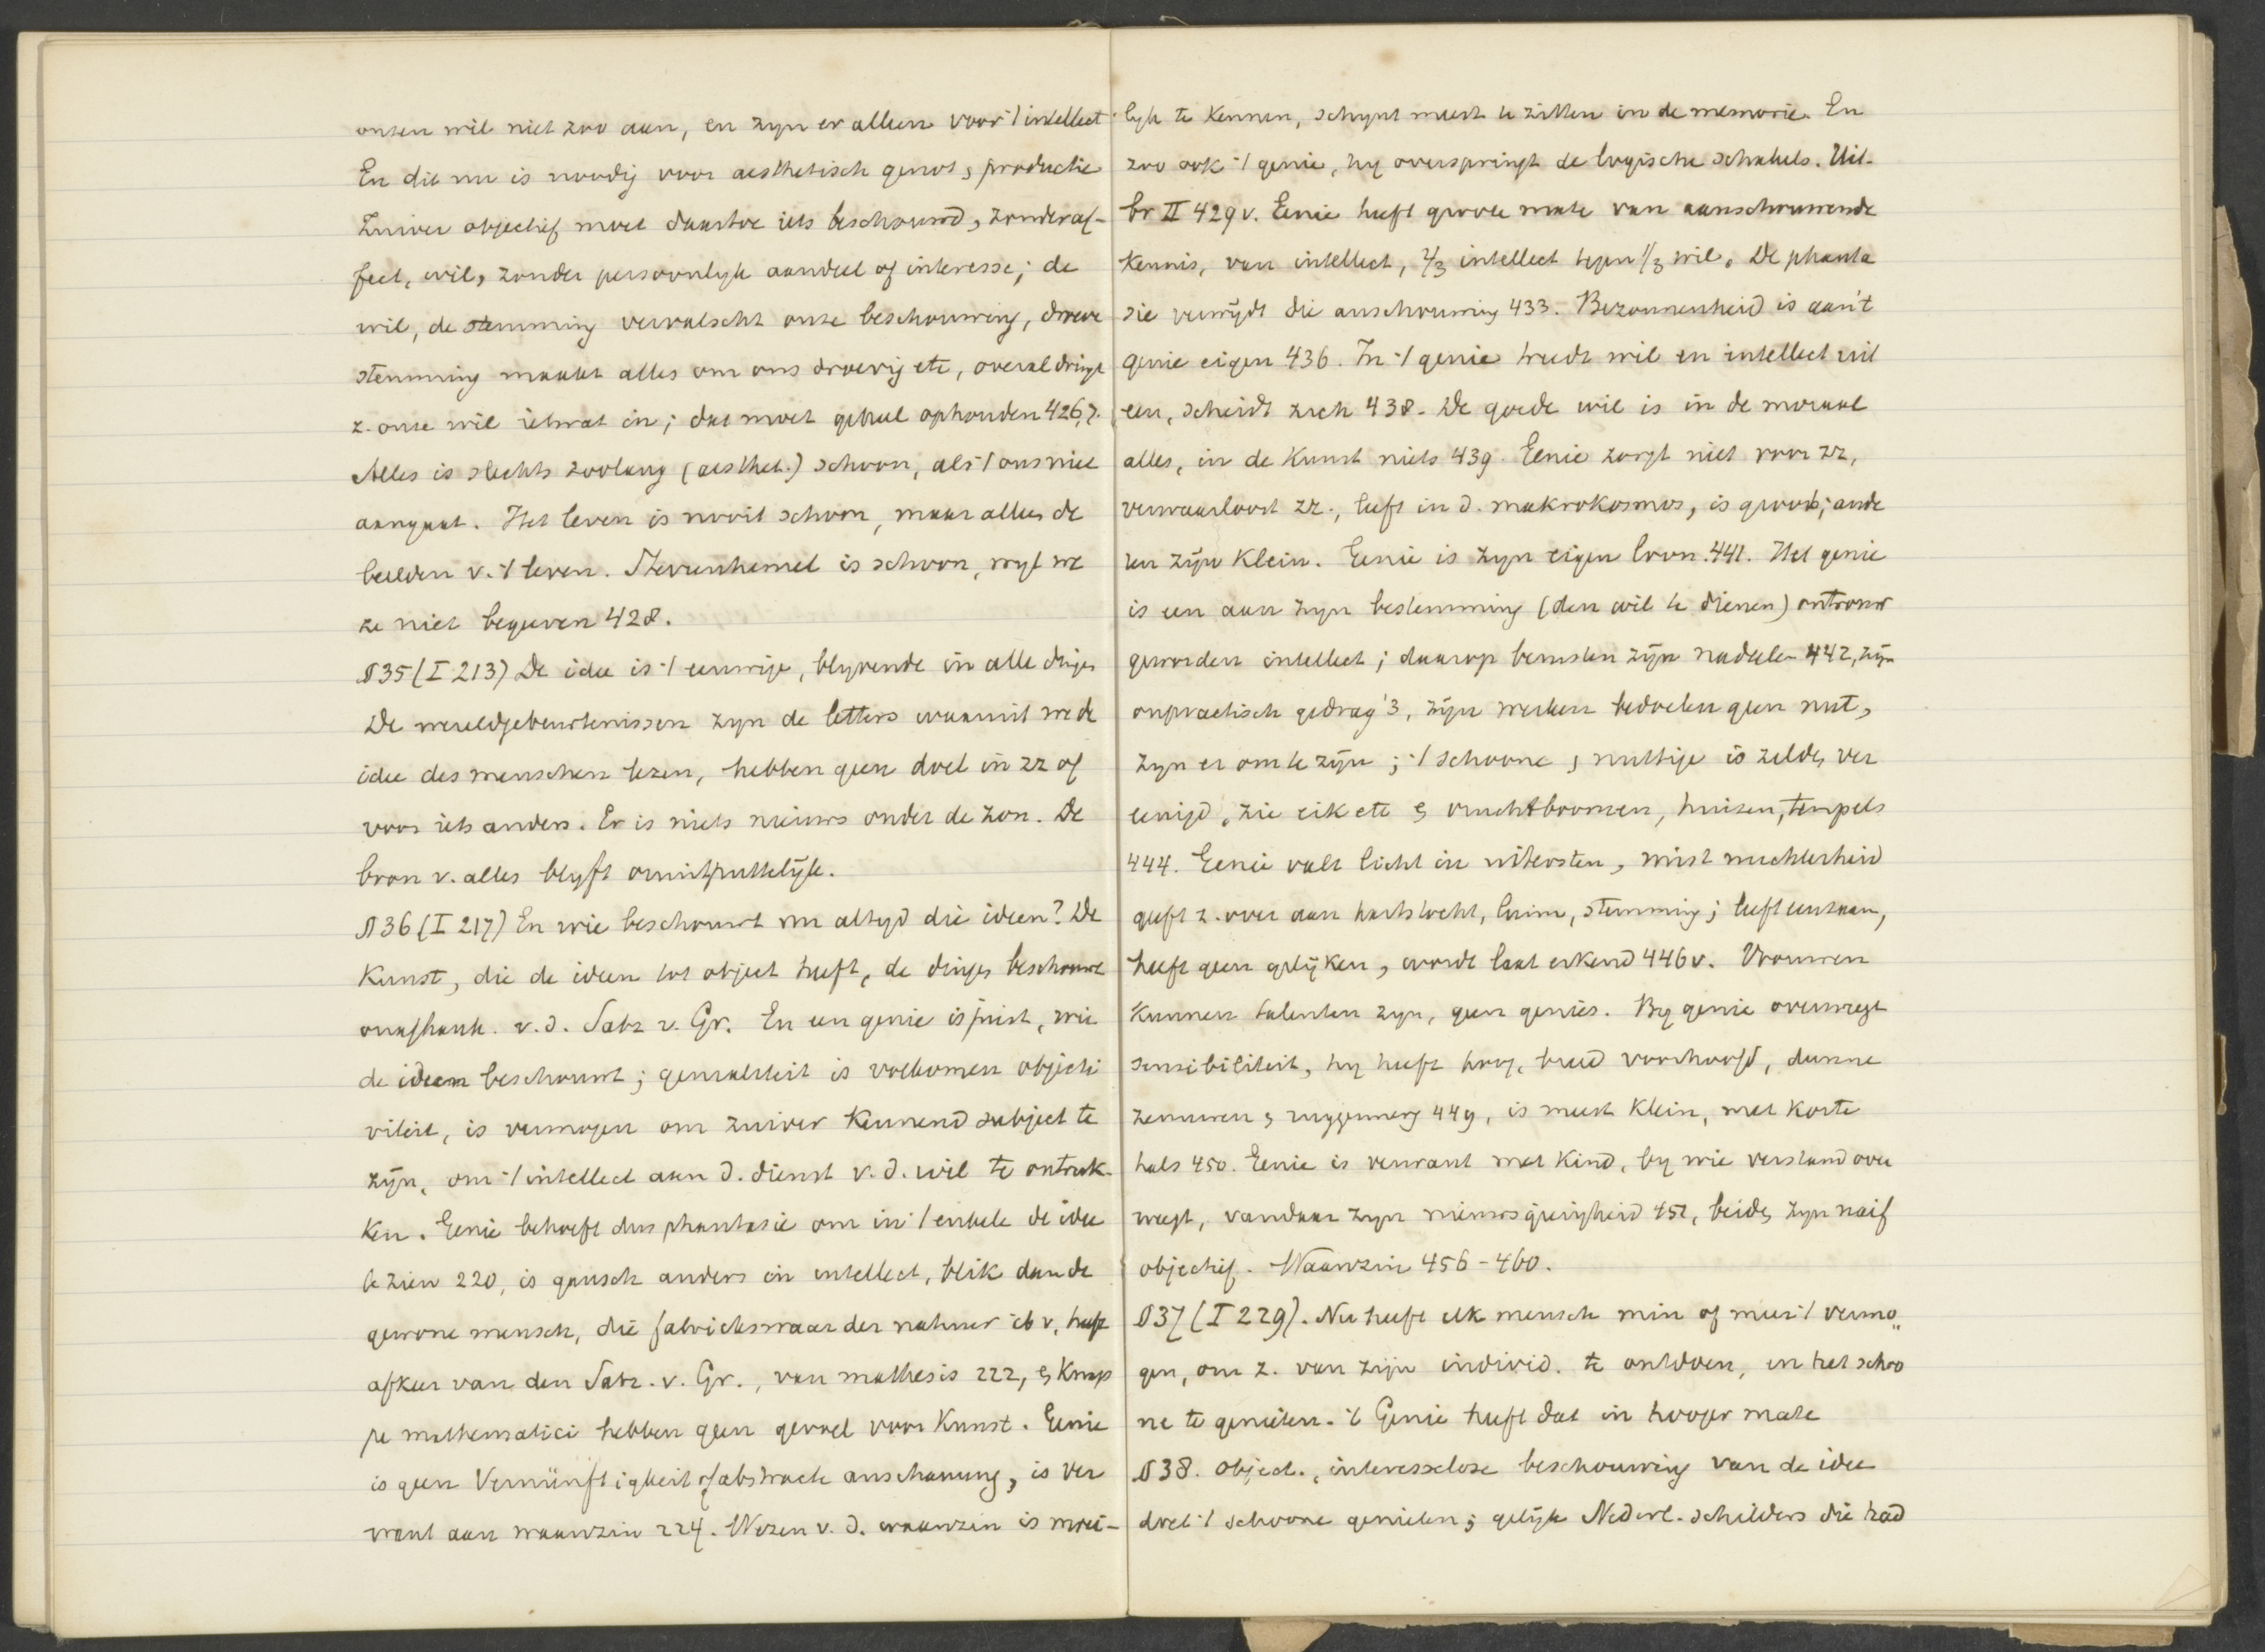 onzen wil niet zoo aan, en zyn er alleen voor 't intellect.
En dit nu is noodig voor aesthetisch genot, productie
Zuiver objectief moet daartoe iets beschouwd, zonder af-
fect, wil, zonder persoonlyk aandeel of interesse; de
wil, de stemming vervalscht onze beschouwing, droeve
stemming maakt alles om ons droevig etc, overal dringt
z. onze wil ietwat in; dat moet geheel ophouden 426,7.
Alles is slechts zoolang (aesthet.) schoon, als 't ons niet
aangaat. Het leven is nooit schoon, maar alleen de
beelden v. 't leven. Sterrenhemel is schoon, wyl we
ze niet begeeren 428.
§35 (I 213) De idee is 't eeuwige, blyvende in alle dinge
De wereldgebeurtenissen zyn de letters waaruit we de
idee des menschen lezen, hebben geen doel in zz of
voor iets anders. Er is niets nieuws onder de zon. De
bron v. alles blyft onuitputtelijk.
§36 (I 217) En wie beschouwt nu altyd die ideen? De
Kunst, die de ideen tot object heeft, de dingen beschouwt
onafhank. v. d. Satz v. Gr. En een genie is juist, wie
de ideen beschouwt; genialiteit is volkomen objecti
viteit, is vermogen om zuiver Kennend subject te
zijn, om 't intellect aan d. dienst v. d. wil te ontrek-
ken. Genie behoeft dus phantasie om in 't enkele de idee
te zien 220, is gansch anders in intellect, blik dan de
gewone mensch, die fabrickswaar der nahuer ib v, heeft
afkeer van den Satz. v. Gr., van mathesis 222, & Knap
pe mathematici hebben geen gevoel voor Kunst. Genie
is geen Vernünftigkeit of abstracte anschauung, is ver
want aan waanzin 224. Wezen v. d. waanzin is moei-
lyk te kennen, schynt meest te zitten in de memorie. En
zoo ook 't genie, hy overspringt de logische schakels. Uit-
br II 429 v. Genie heeft groote mate van aanschouwende
Kennis, van intellect, 2/3 intellect tegen 1/3 wil. De phanta
sie verwijdt die anschouwing 433. Bezonnenheid is aan't
genie eigen 436. In 't genie treedt wil en intellect uit
een, scheidt zich 438. De goede wil is in de moraal
alles, in de Kunst niets 439. Genie zorgt niet voor zz,
verwaarloost zz., leeft in d. makrokosmos, is groot; ande
ren zijn Klein. Genie is zyn eigen loon. 441. Het genie
is een aan zyn bestemming (den wil te dienen) ontrouw
geworden intellect; daarop berusten zijn nadeelen 442, zijn
onpractisch gedrag '3, zijn werken bedoelen geen nut,
zyn er om te zijn; 't schoone & nuttige is zelden ver
eenigd, zie eik etc & vruchtboomen, huizen, tempels
444. Genie valt licht in uitersten, mist nuchterheid
geeft z. over aan hartstocht, luim, stemming; leeft eenzaam,
heeft geen gelijken, wordt laat erkend 446 v. Vrouwen
Kunnen talenten zyn, geen genies. By genie overweegt
sensibiliteit, hy heeft hoog, breed voorhoofd, dunne
zenuwen & ruggemerg 449, is meest Klein, met korte
hals 450. Genie is verwant met Kind, by wie verstand over
weegt, vandaar zyn nieuwsgierigheid 451, beiden zyn naif
objectief. Waanzin 456-460.
§37 (I 229). Nu heeft elk mensch min of meer 't vermo„
gen, om z. van zijn individ. te ontdoen, en het schoo
ne te genieten. 't Genie heeft dat in hooger mate
§38. Object., interesselose beschouwing van de idee
doet 't schoone genieten; gelijk Nederl. schilders die had